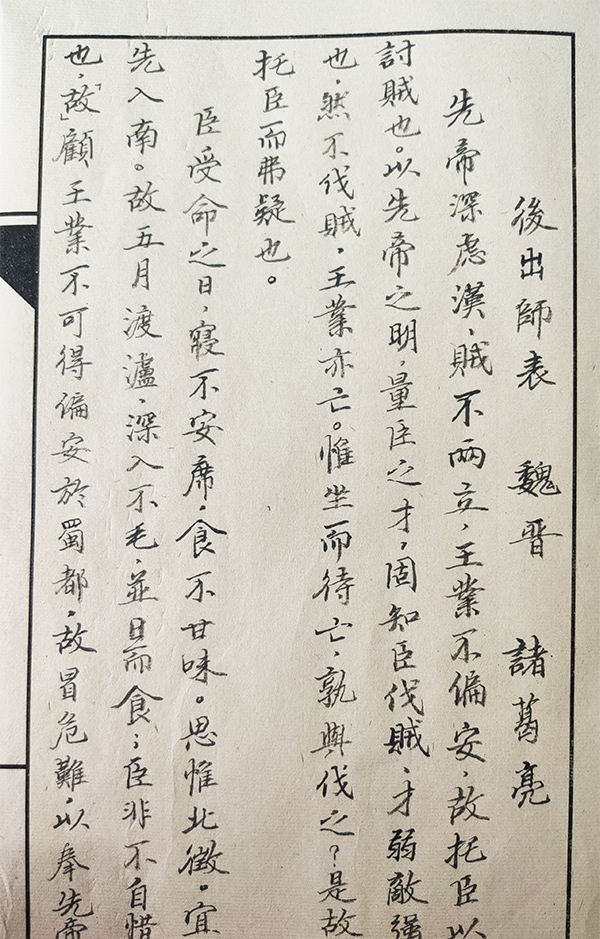 後出師表 魏晋 諸葛亮
先帝深慮漢、賊不兩立，王業不偏安，故托臣以
討賊也。以先帝之明，量臣之才，固知臣伐賊，才弱敵强
也。然不伐賊，王業亦亡。惟坐而待亡，孰與伐之？是故
托臣而弗疑也。
臣受命之日，寢不安席，食不甘味。思惟北徵。宜
先入南。故五月渡瀘，深入不毛，並日而食；臣非不自惜
也，「故」顧王業不可得偏安於蜀都，故冒危難，以奉先帝